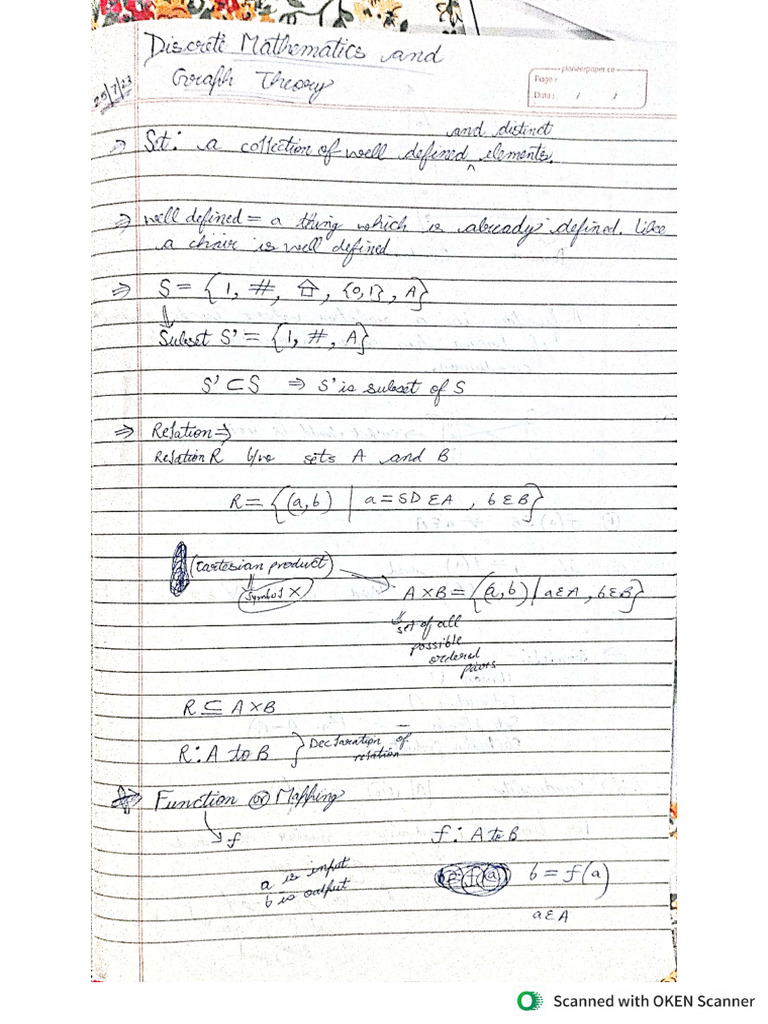 Discrete Mathematics and
Graph Theory
25/7/23
pioneerpaper.co
Page:
Date: / /
and distinct
⇒ Set: a collection of well defined ^ elements.
⇒ well defined = a thing which is already defined. Like
a chair is well defined.
⇒ S = {1, #, ⇧, {0,1}, A}
Subset S' = {1, #, A}
S' ⊂ S ⇒ S' is subset of S
⇒ Relation ⇒
Relation R b/w sets A and B
R = {(a,b) | a = SD ε A, b ε B}
(Cartesian product)
Symbol X
A × B = {(a,b) | a ε A, b ε B}
set of all
possible
ordered
pairs
R ⊆ A × B
R: A to B } Declaration of
relation
⇒ Function or Mapping
f
f: A to B
a is input
b is output
b = f(a)
a ε A
Scanned with OKEN Scanner